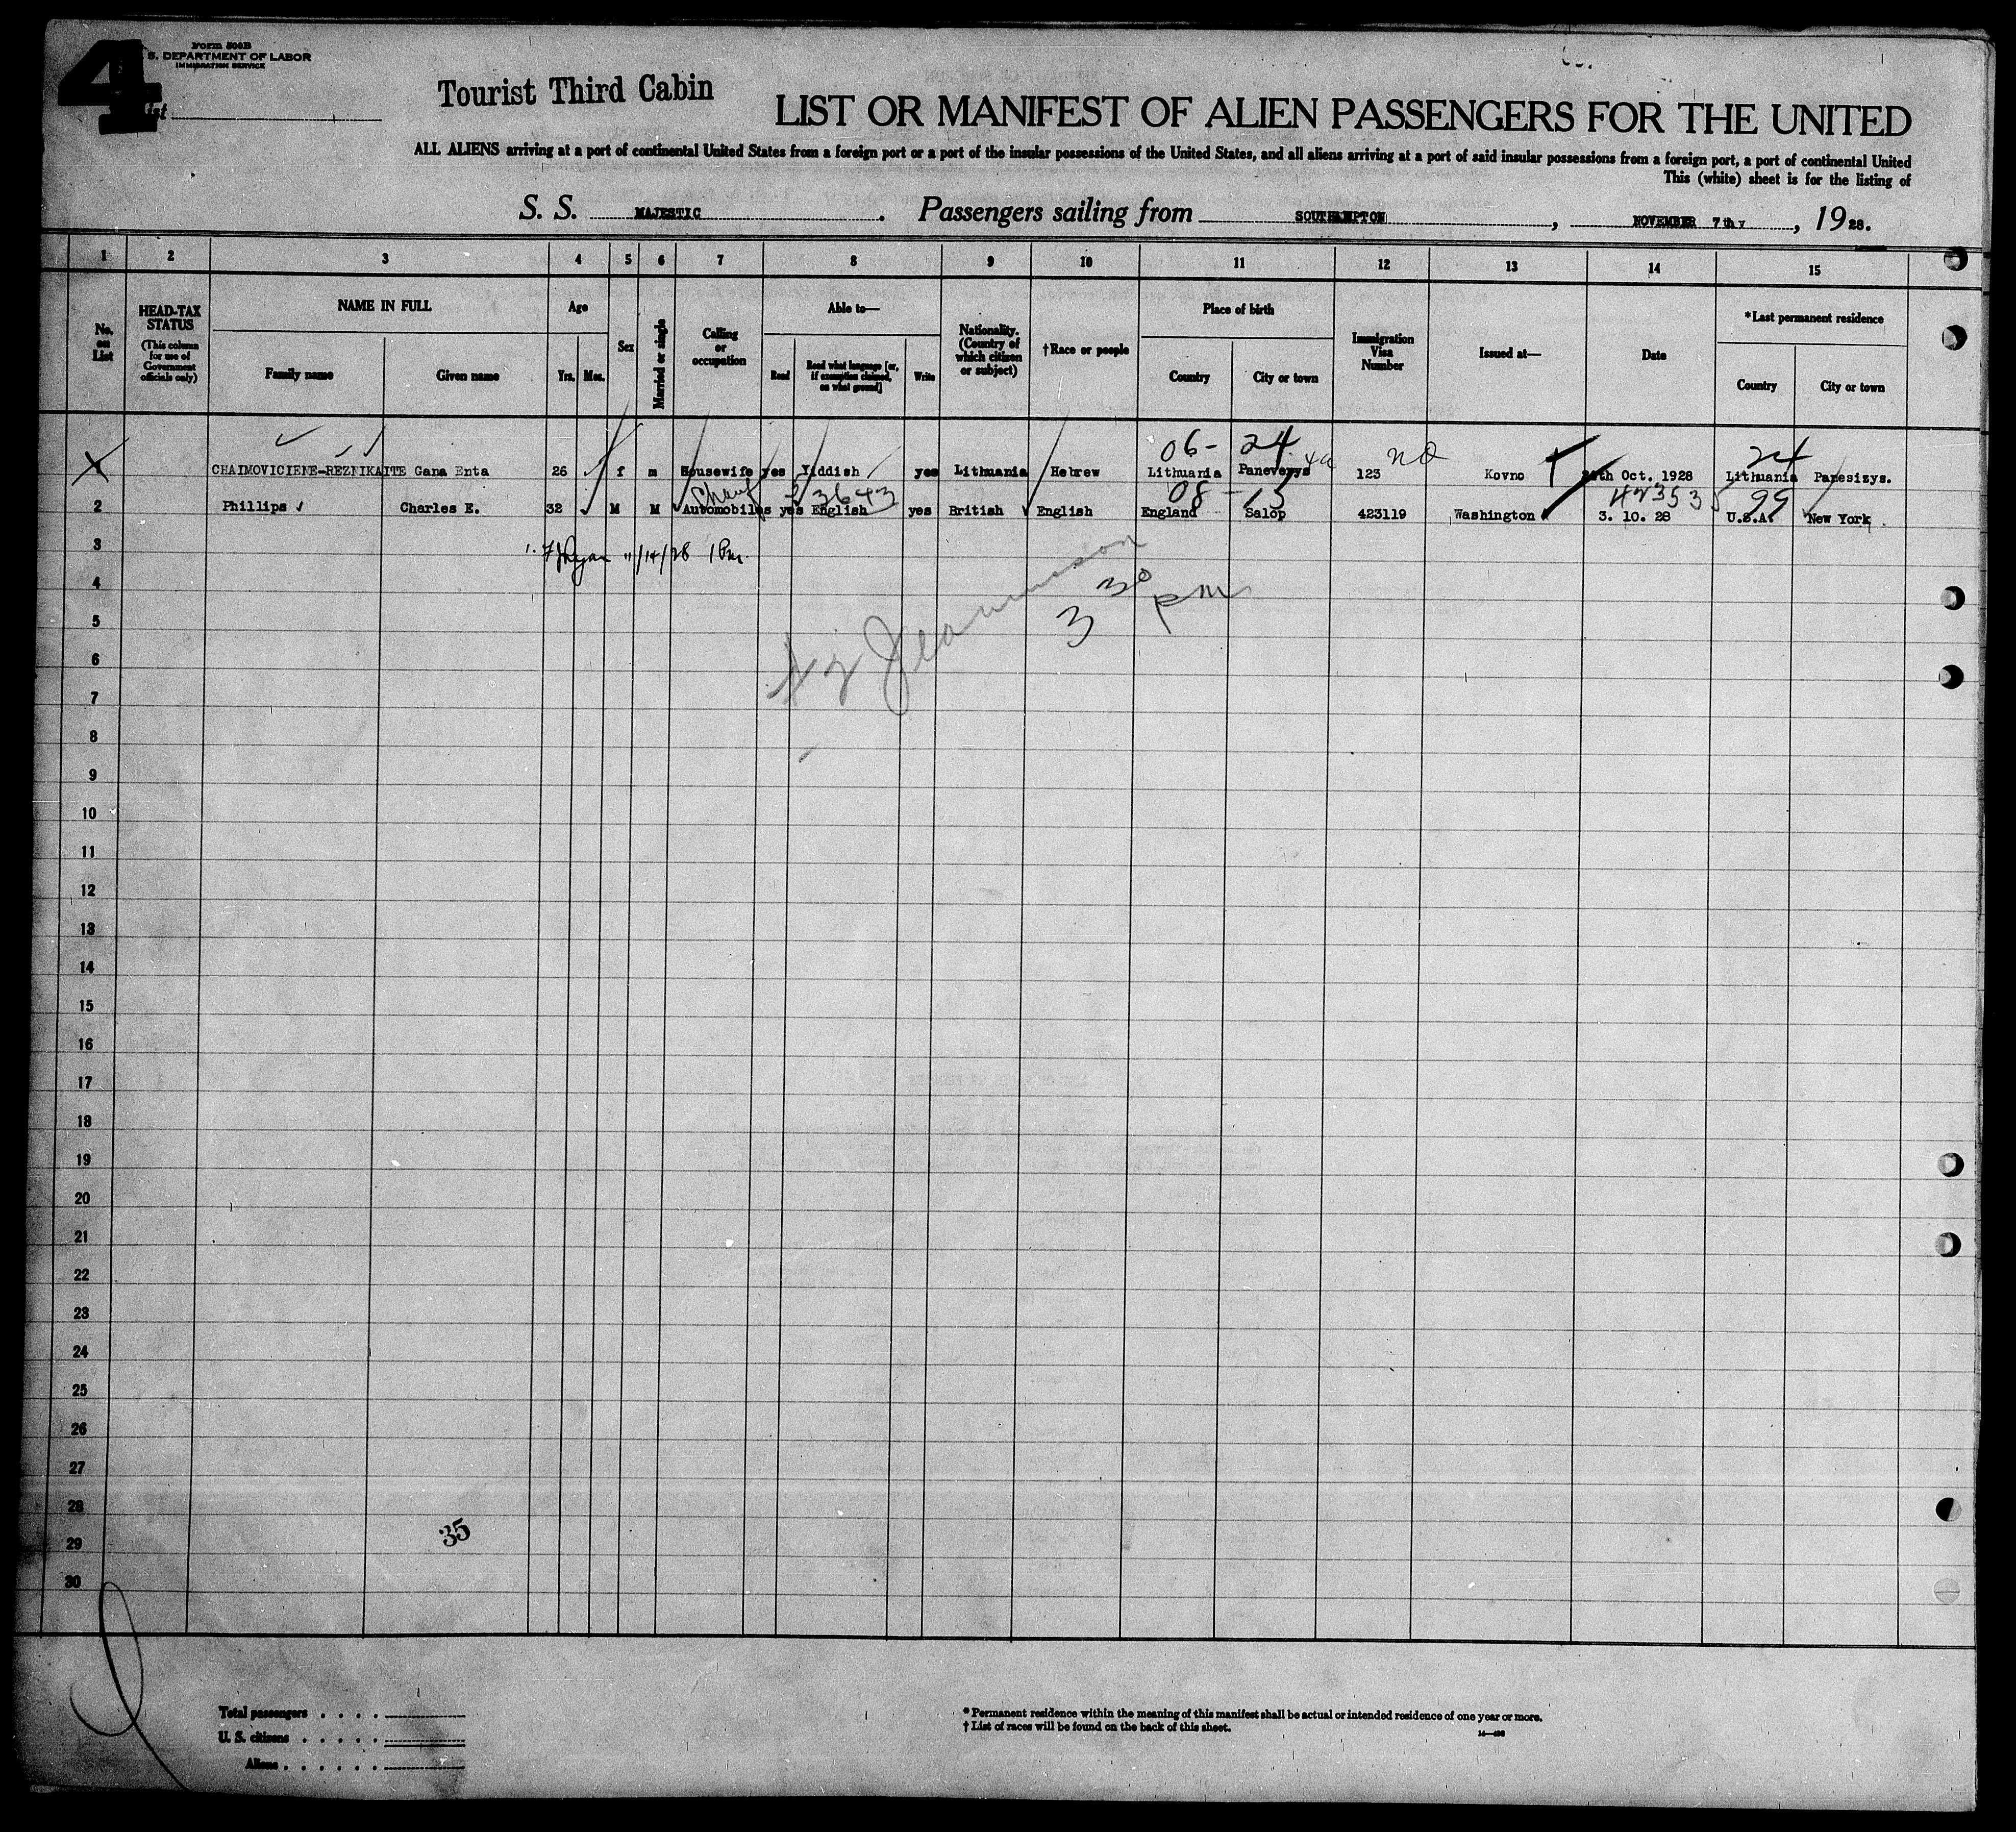 4
Form 500B
S. DEPARTMENT OF LABOR
IMMIGRATION SERVICE
Tourist Third Cabin
LIST OR MANIFEST OF ALIEN PASSENGERS FOR THE UNITED
ALL ALIENS arriving at a port of continental United States from a foreign port or a port of the insular possessions of the United States, and all aliens arriving at a port of said insular possessions from a foreign port, a port of continental United
This (white) sheet is for the listing of
S. S. MAJESTIC. Passengers sailing from SOUTHAMPTON, NOVEMBER 7th, 1928.
1 2 3 4 5 6 7 8 9 10 11 12 13 14 15
No. on List
HEAD-TAX STATUS (This column for use of Government officials only)
NAME IN FULL
Family name Given name
Age
Yrs. Mos.
Sex
Married or single
Calling or occupation
Able to—
Read Read what language [or, if exemption claimed, on what ground] Write
Nationality. (Country of which citizen or subject)
†Race or people
Place of birth
Country City or town
Immigration Visa Number
Issued at—
Date
*Last permanent residence
Country City or town
06- 24 no 24
CHAIMOVICIENE-REZNIKAITE Gana Enta 26 f m Housewife yes Yiddish yes Lithuania Hebrew Lithuania Panevezys 123 Kovno Oct. 1928 Lithuania Panesizys.
Chauf 3643 08-15 423535 99
2 Phillips Charles E. 32 M M Automobiles yes English yes British English England Salop 423119 Washington 3. 10. 28 U.S.A. New York
3 11/14/28 1 Pm.
4 3 30 pm
5
6
7
8
9
10
11
12
13
14
15
16
17
18
19
20
21
22
23
24
25
26
27
28
29 35
30
Total passengers . . . .
U. S. citizens . . . . .
Aliens . . . . . .
* Permanent residence within the meaning of this manifest shall be actual or intended residence of one year or more.
† List of races will be found on the back of this sheet.